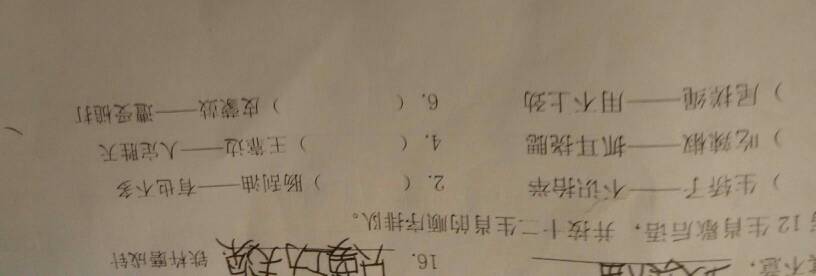 不意， 16. 只要功夫深 铁杵磨成针
12 生肖歇后语，并按十二生肖的顺序排队。
）坐轿子——不识抬举 2.（ ）肠刮油——有也不多
）吃辣椒——抓耳挠腮 4.（ ）王靠边——人定胜天
）尾搓绳——用不上劲 6.（ ）皮蒙鼓——遭受槌打